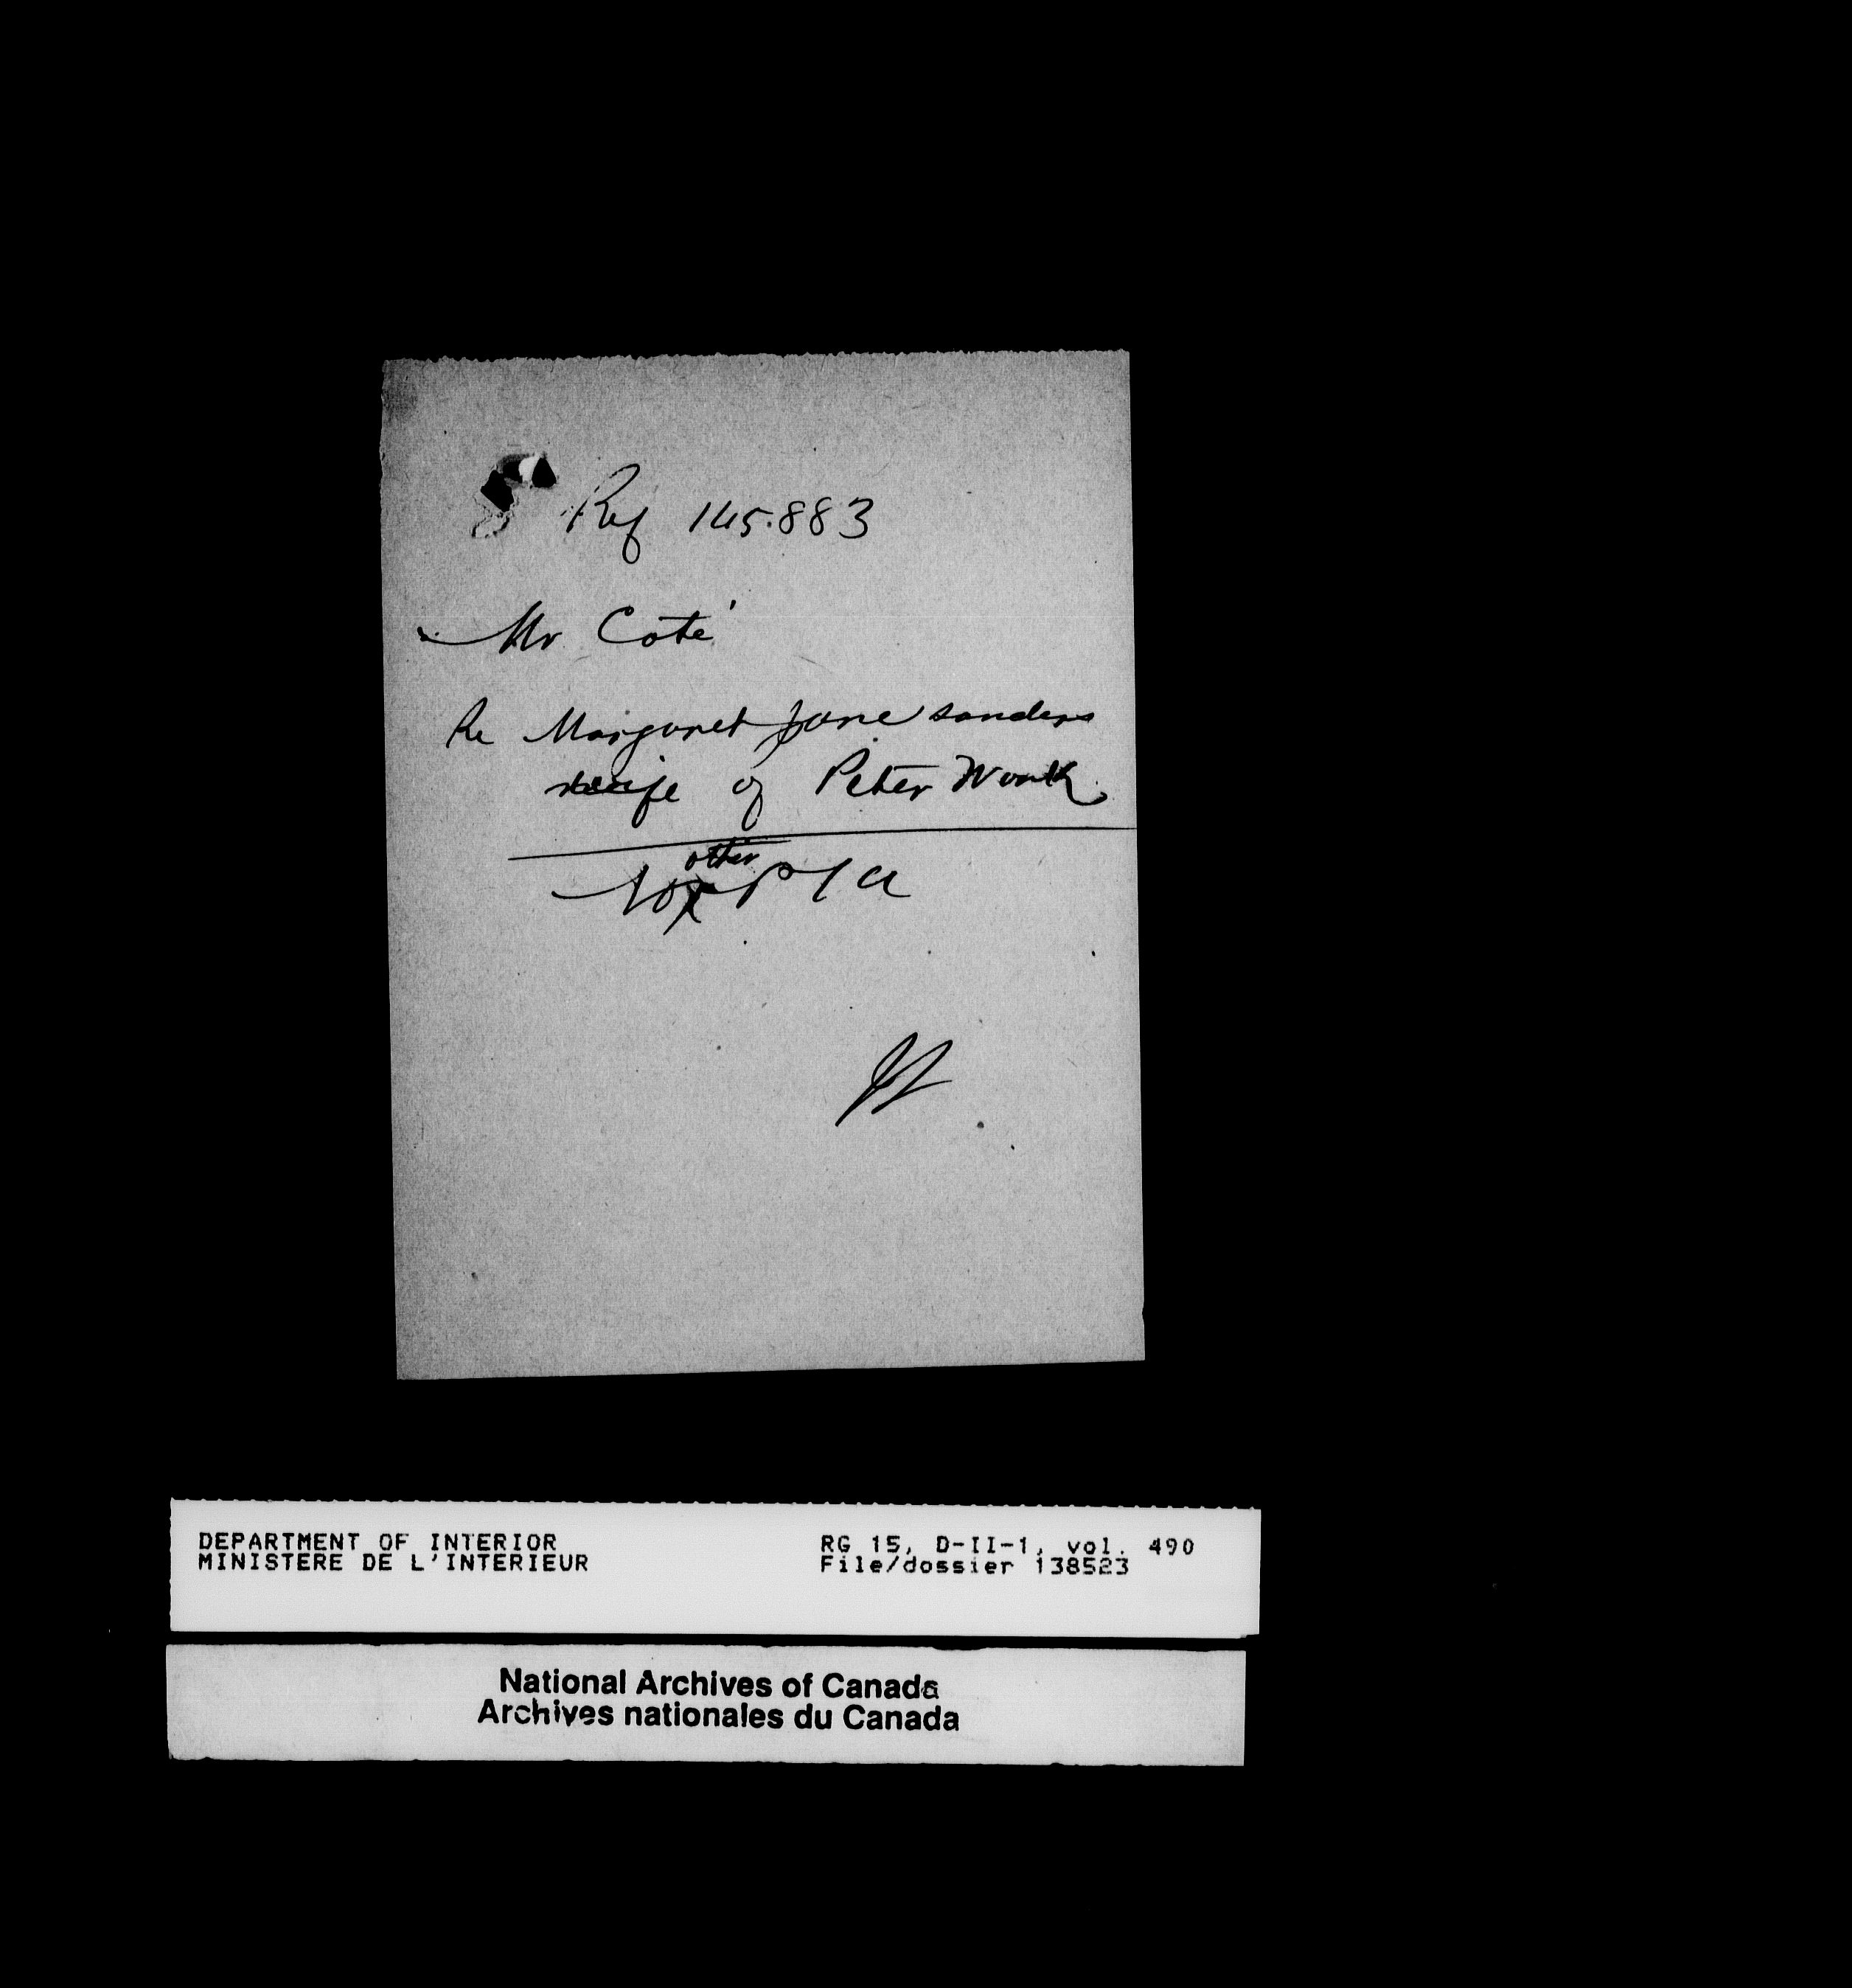 Ref 145.883
Mr Coté
Re Margaret Jane Sanders
wife of Peter Work
other
No P / a
DEPARTMENT OF INTERIOR
MINISTERE DE L'INTERIEUR
RG 15, D-II-1, vol. 490
File/dossier 138523
National Archives of Canada
Archives nationales du Canada